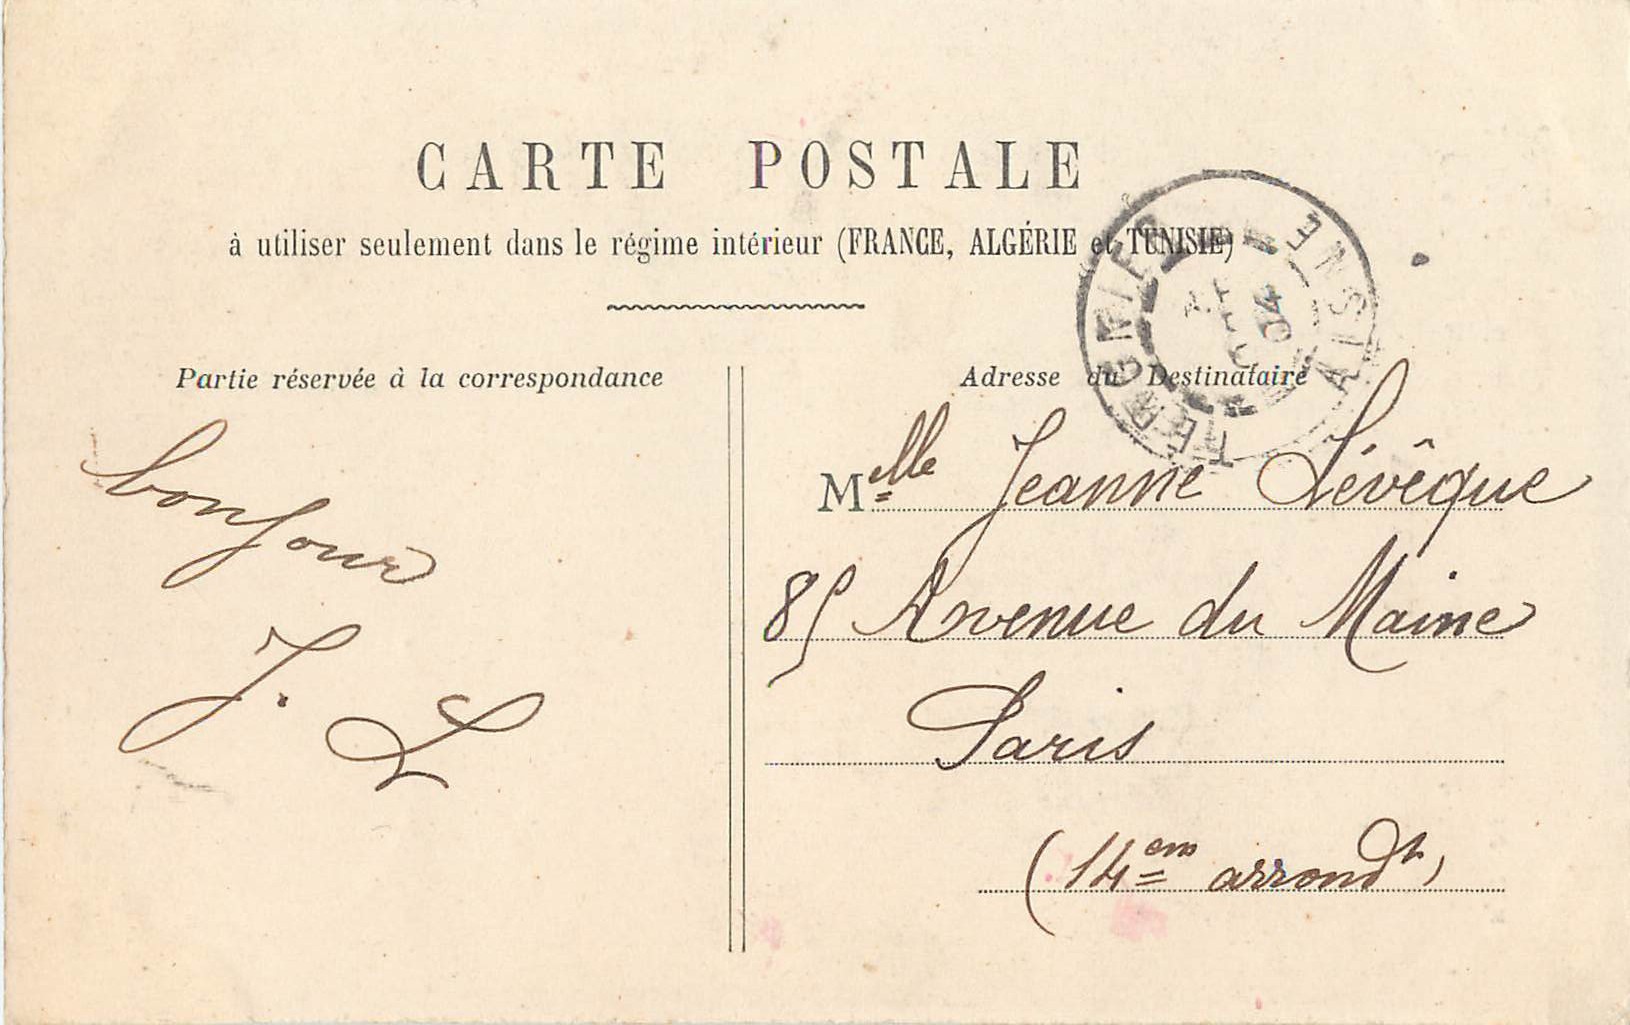 CARTE POSTALE
à utiliser seulement dans le régime intérieur (FRANCE, ALGÉRIE et TUNISIE)
TERGNIER
AISNE
04
Partie réservée à la correspondance
bonjour
J. L
Adresse du Destinataire
Melle Jeanne Lévêque
85 Avenue du Maine
Paris
(14em arrondt)